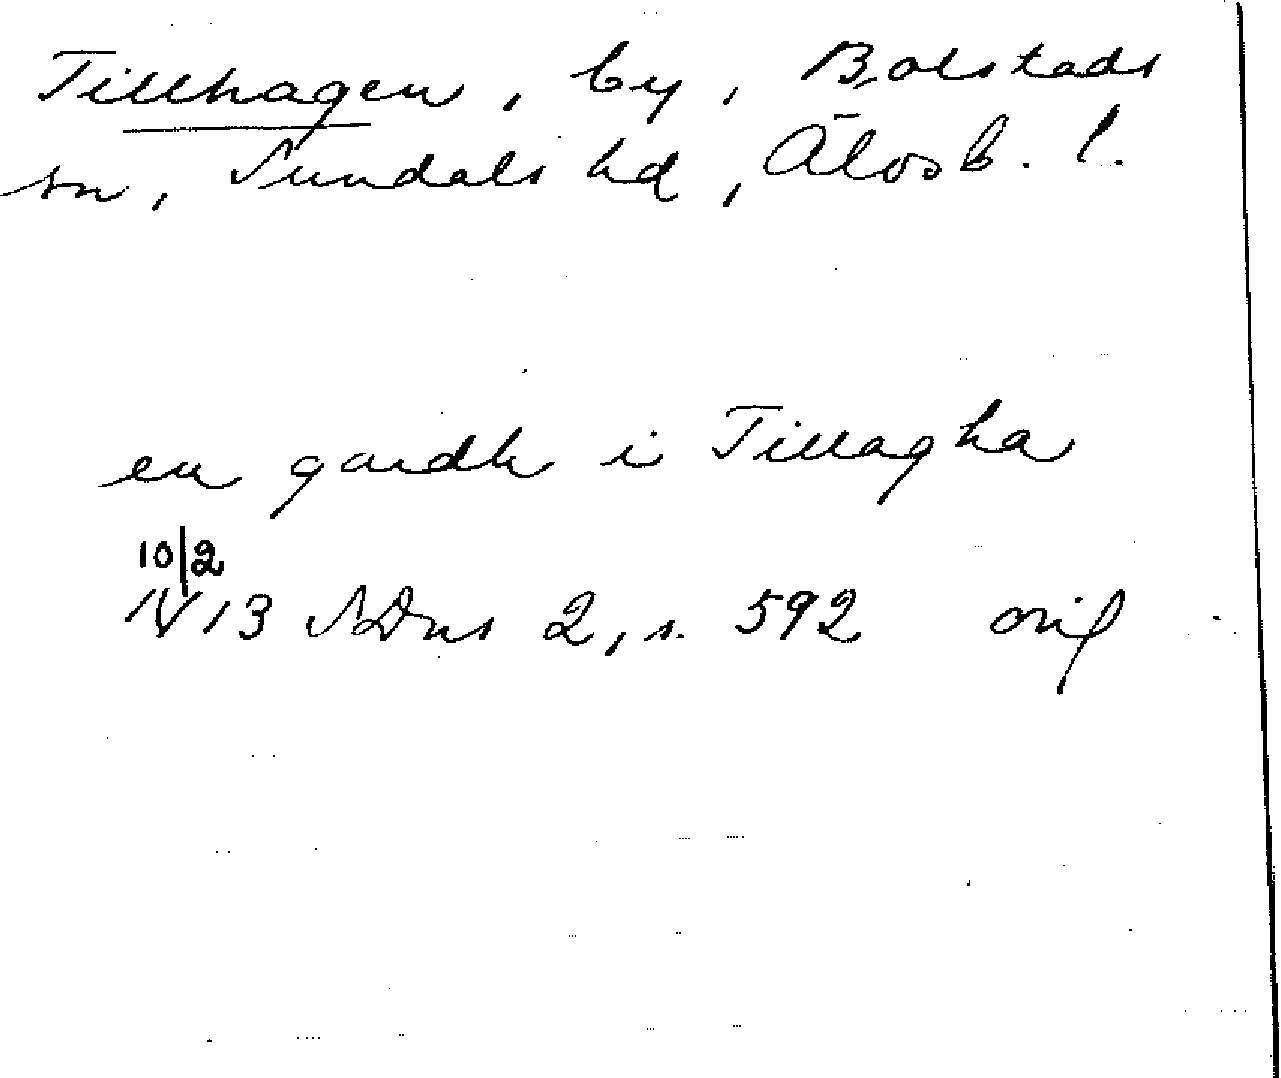 Tillhagen, by, Bolstads
sn, Sundals hd, Älvsb. l.
en gardh i Tillagha
10/2
1413 SDns 2, s. 592 orig